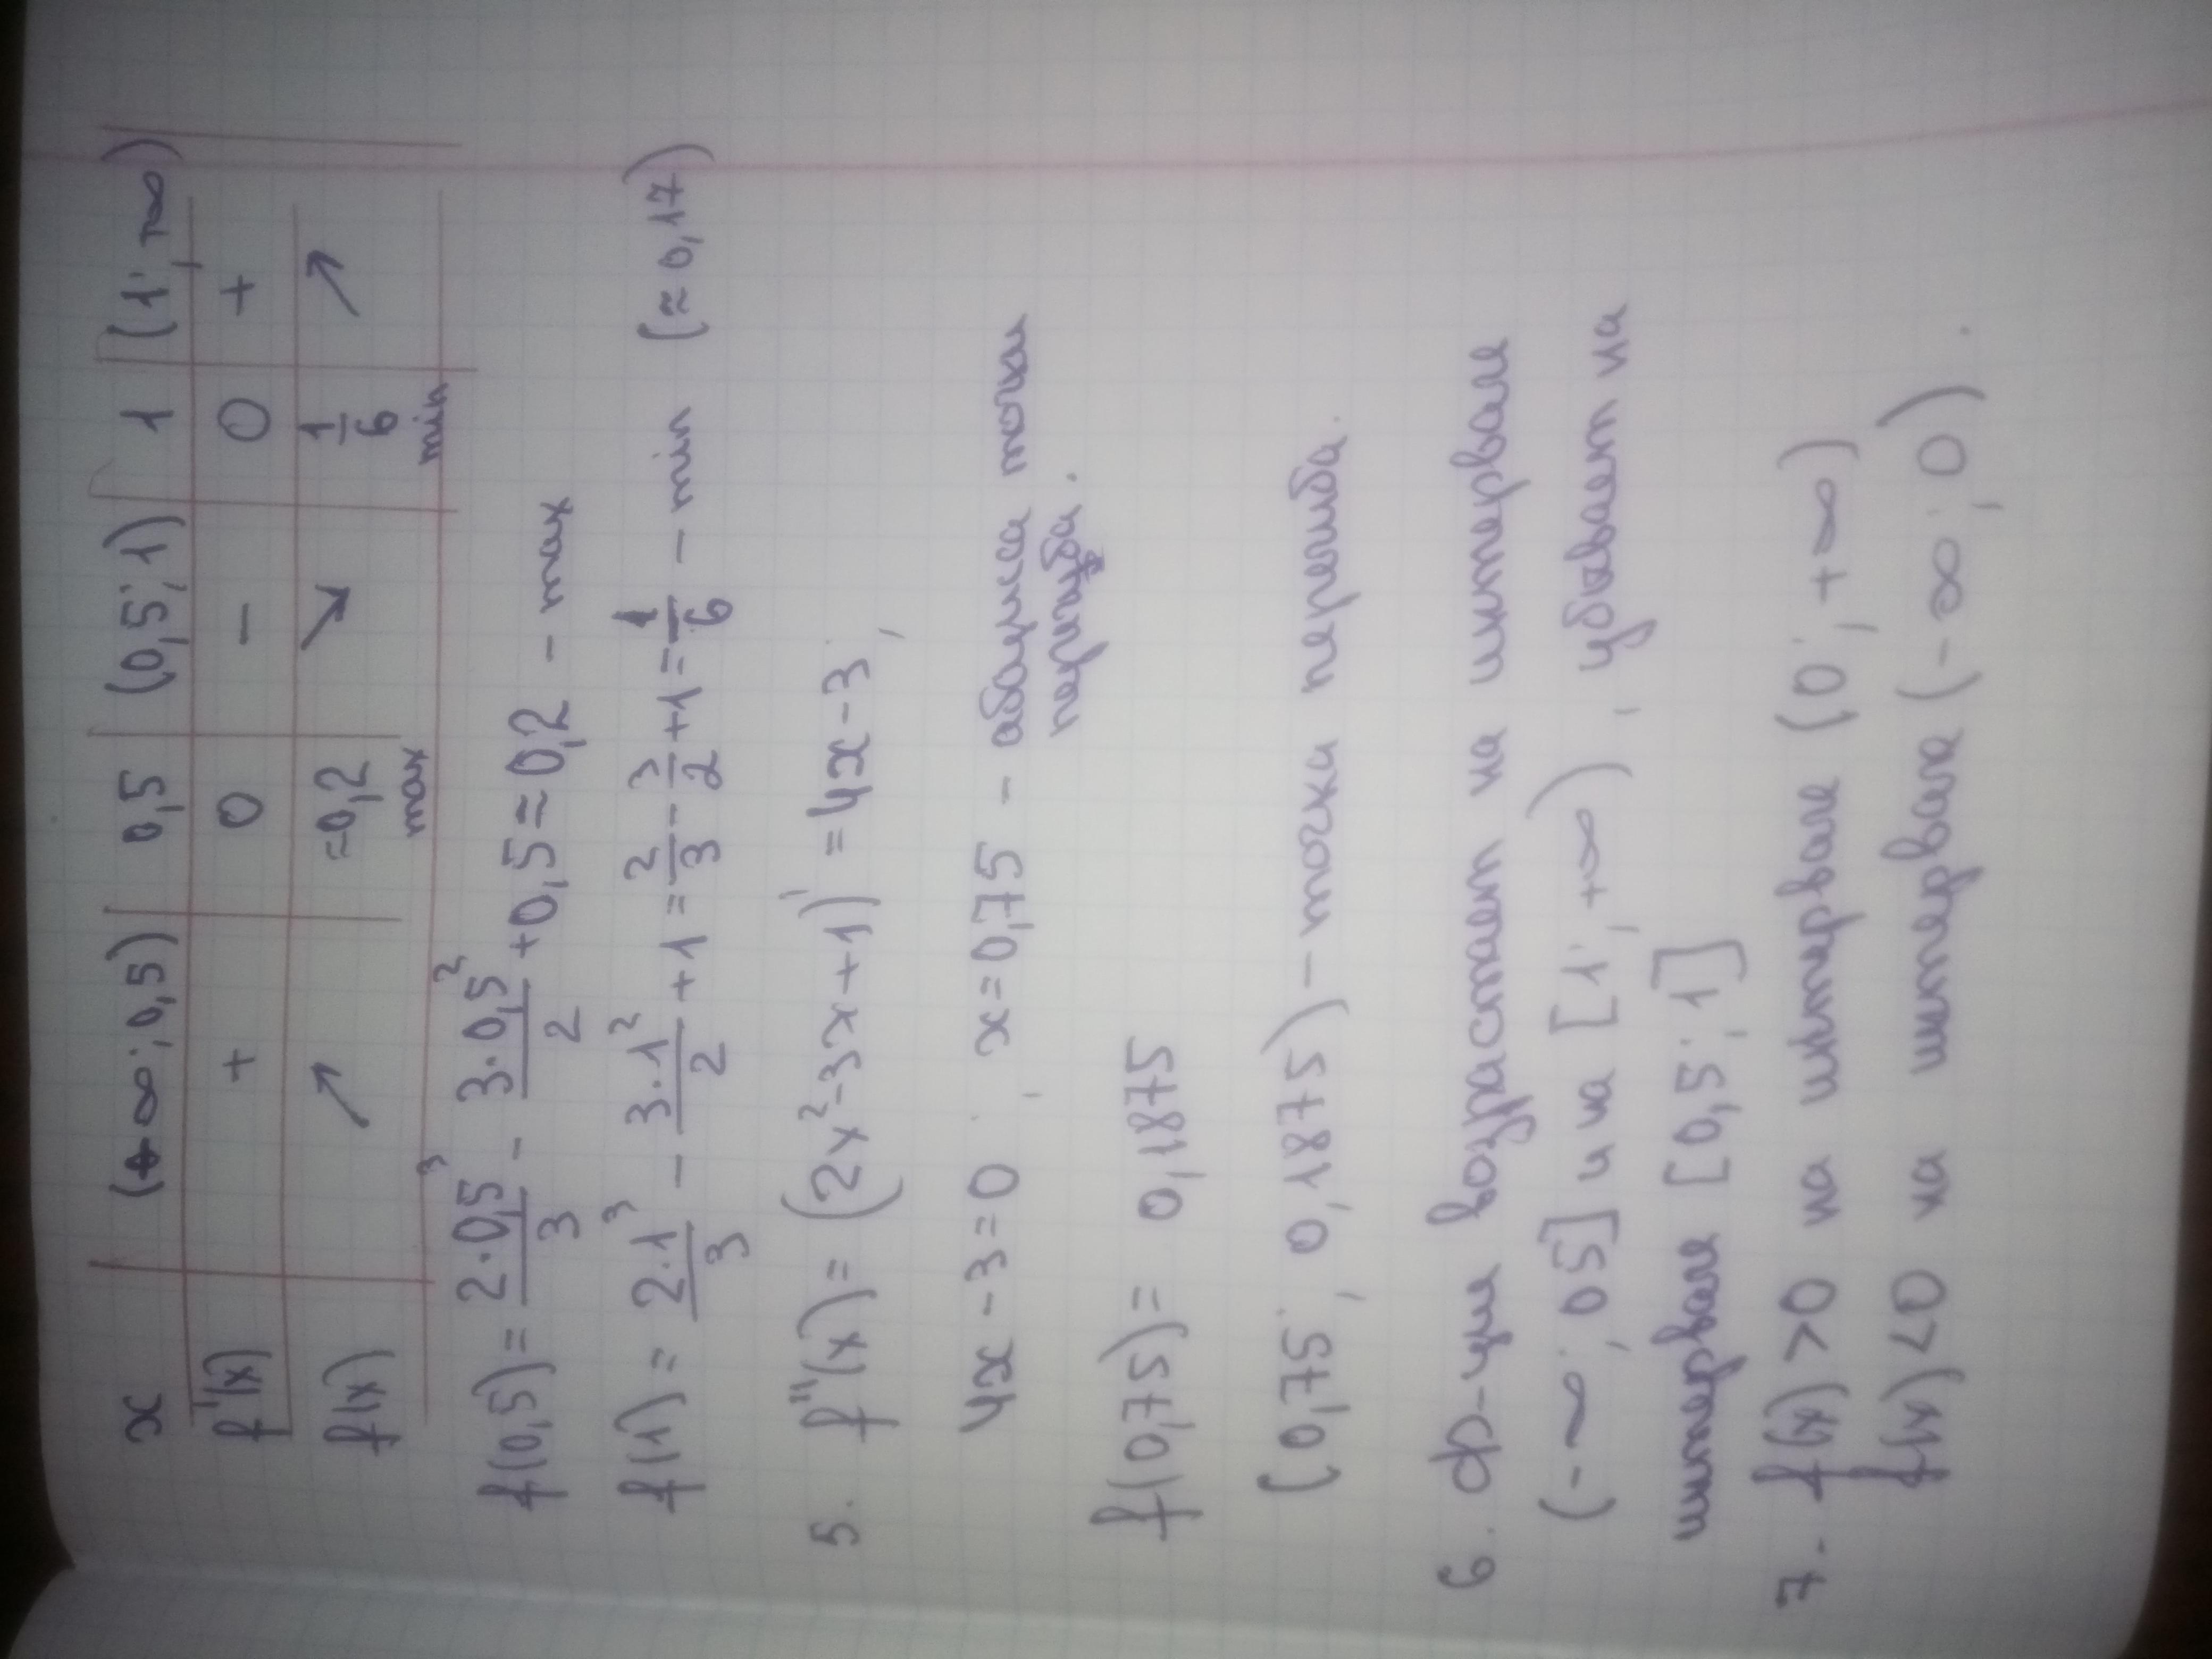 x (-∞; 0,5) 0,5 (0,5; 1) 1 (1; ∞)
f'(x) + 0 − 0 +
f(x) ↗ ≈0,2 max ↘ 1/6 min ↗
f(0,5) = 2·0,5³/3 - 3·0,5²/2 + 0,5 ≈ 0,2 - max
f(1) = 2·1³/3 - 3·1²/2 + 1 = 2/3 - 3/2 + 1 = 1/6 - min (≈ 0,17)
5. f''(x) = (2x² - 3x + 1)' = 4x - 3;
4x - 3 = 0; x = 0,75 - абцисса точки
перегиба.
f(0,75) = 0,1875
(0,75; 0,1875) - точка перегиба.
6. Ф-ция возрастает на интервале
(-∞; 0,5] и на [1; +∞), убывает на
интервале [0,5; 1]
7. f(x) > 0 на интервале (0; +∞)
f(x) < 0 на интервале (-∞; 0).